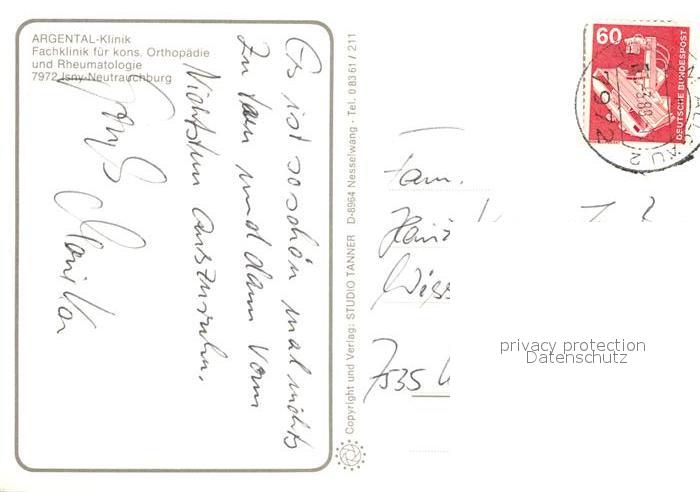 ARGENTAL-Klinik
Fachklinik für kons. Orthopädie
und Rheumatologie
7972 Isny-Neutrauchburg
Es ist so schön mal nichts
zu tun und dann vom
Nichtstun auszuruhn.
Gruß
Monika
Copyright und Verlag: STUDIO TANNER D-8964 Nesselwang - Tel. 0 83 61 / 211
60
DEUTSCHE BUNDESPOST
7972
Fam.
7535
privacy protection
Datenschutz